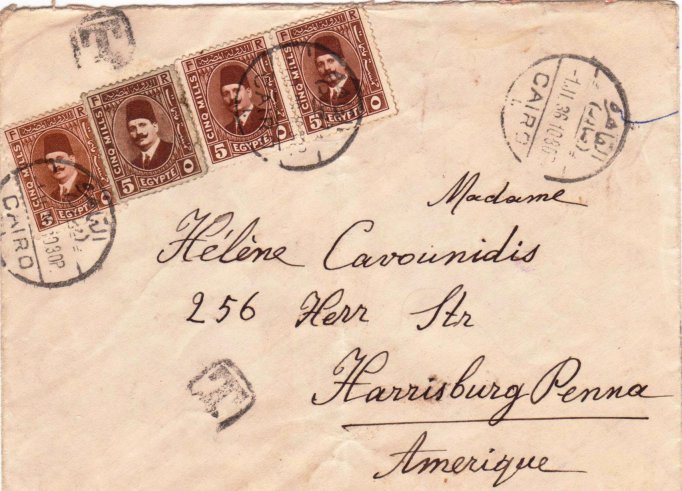 T
F R
CINQ MILLS
5 EGYPTE ٥
F R
CINQ MILLS
5 EGYPTE ٥
F R
CINQ MILLS
5 EGYPTE ٥
F R
CINQ MILLS
5 EGYPTE ٥
CAIRO
CAIRO
القاهرة
Madame
Hélène Cavounidis
256 Herr Str
Harrisburg Penna
Amerique
T